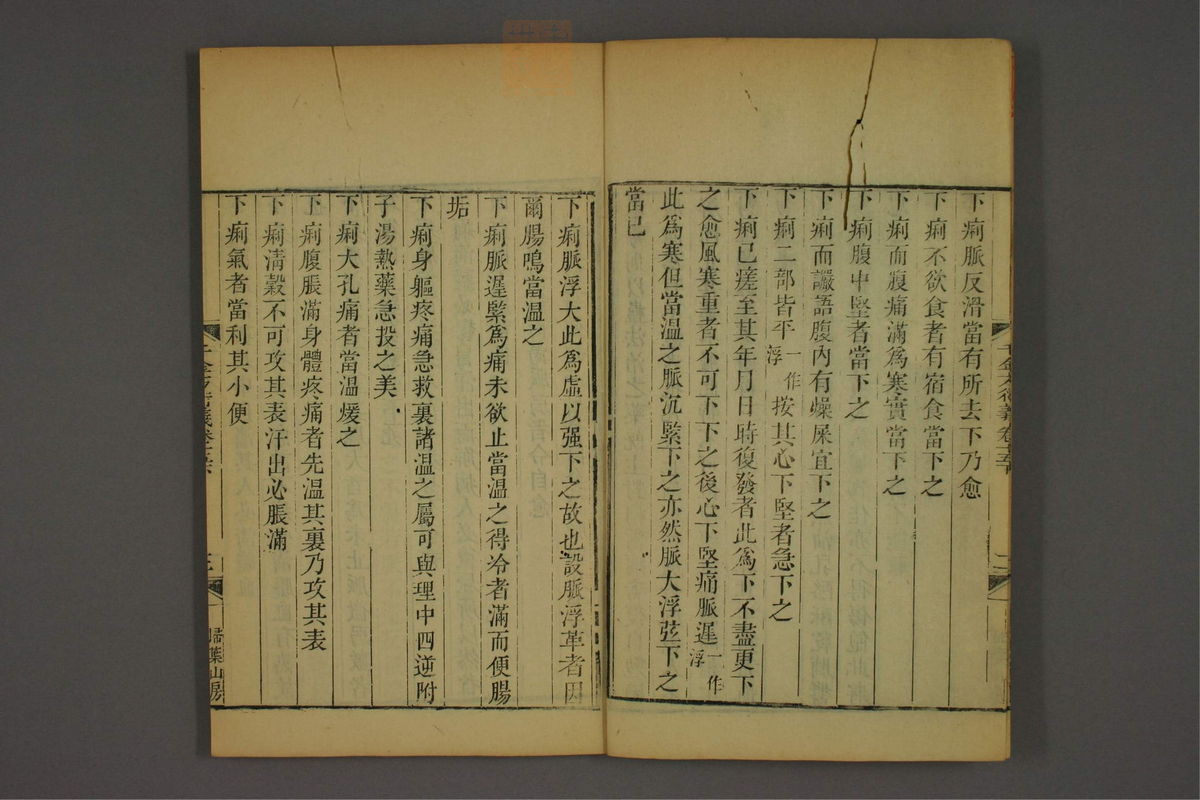 下痢脈反滑當有所去下乃愈
下痢不欲食者有宿食當下之
下痢而腹痛滿為寒實當下之
下痢腹中堅者當下之
下痢而讝語腹內有燥屎宜下之
下痢二部皆平一作浮按其心下堅者急下之
下痢已瘥至其年月日時復發者此爲下不盡更下
之愈風寒重者不可下下之後心下堅痛脈遲一作浮
此爲寒但當溫之脈沉緊下之亦然脈大浮弦下之
當已
下痢脈浮大此爲虛以强下之故也設脈浮革者因
爾腸鳴當溫之
下痢脈遲緊爲痛未欲止當溫之得冷者滿而便腸
垢
下痢身軀疼痛急救裏諸溫之屬可與理中四逆附
子湯熱藥急投之美
下痢大孔痛者當溫煖之
下痢腹脹滿身體疼痛者先溫其裏乃攻其表
下痢淸穀不可攻其表汗出必脹滿
下痢氣者當利其小便
千金方衍義卷
三
掃葉山房